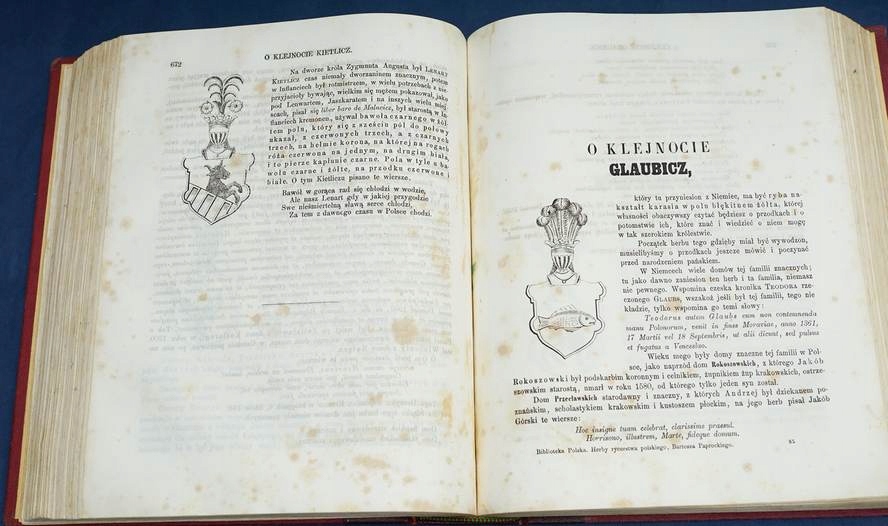 672
O KLEJNOCIE KIETLICZ.
Na dworze króla Zygmunta Augusta był LENART
KIETLICZ czas niemały dworzaninem znacznym, potem
w Inflanciech był rotmistrzem, w wielu potrzebach z nie-
przyjacioły bywając, wielkim się mężem pokazował, jako
pod Lenwartem, Jaszkaratem i na inszych wielu miej-
scach, pisał się liber baro de Malowicz, był starostą w In-
flanciech kremonen, używał bawoła czarnego w żół-
tem polu, który się z sześciu pól do połowy
ukazał, z czerwonych trzech, a z czarnych
trzech, na hełmie korona, na której na rogach
róża czerwona na jednym, na drugim biała,
i to pierze kapłunie czarne. Pola w tyle z ba-
wołu czarne i żółte, na przodku czerwone i
białe. O tym Kietliczu pisano te wiersze.
Bawół w gorąca rad się chłodzi w wodzie,
Ale nasz Lenart gdy w jakiej przygodzie
Swe nieśmiertelną sławą serce chłodzi,
Za tem z dawnego czasu w Polsce chodzi.
O KLEJNOCIE
GLAUBICZ,
który tu przyniesion z Niemiec, ma być ryba na-
kształt karasia w polu błękitnem żółta, której
własności obaczywszy czytać będziesz o przodkach i o
potomstwie ich, które znać i wiedzieć o niem mogę
w tak szerokiem królestwie.
Początek herbu tego gdzieby miał być wywodzon,
musielibyśmy o przodkach jeszcze mówić i poczynać
przed narodzeniem pańskiem.
W Niemcech wiele domów tej familii znacznych;
tu jako dawno zaniesion ten herb i ta familia, niemasz
nic pewnego. Wspomina czeska kronika TEODORA rze-
czonego GLAUBS, wszakoż jeśli był tej familii, tego nie
kładzie, tylko wspomina go temi słowy:
Teodorus autem Glaubs cum non contemnenda
manu Polonorum, venit in fines Moraviae, anno 1361,
17 Martii vel 18 Septembris, ut alii dicunt, sed pulsus
et fugatus a Venceslao.
Wieku mego były domy znaczne tej familii w Pol-
sce, jako naprzód dom Rokoszowskich, z którego Jakób
Rokoszowski był podskarbim koronnym i celnikiem, żupnikiem żup krakowskich, ostrze-
szowskim starostą, umarł w roku 1580, od którego tylko jeden syn został.
Dom Przecławskich starodawny i znaczny, z których Andrzej był dziekanem po-
znańskim, scholastykiem krakowskim i kustoszem płockim, na jego herb pisał Jakób
Górski te wiersze:
Hoc insigne tuam celebrat, clarissime praesul,
Horrisono, illustrem, Marte, fideque domum.
Biblioteka Polska. Herby rycerstwa polskiego, Bartosza Paprockiego.
85